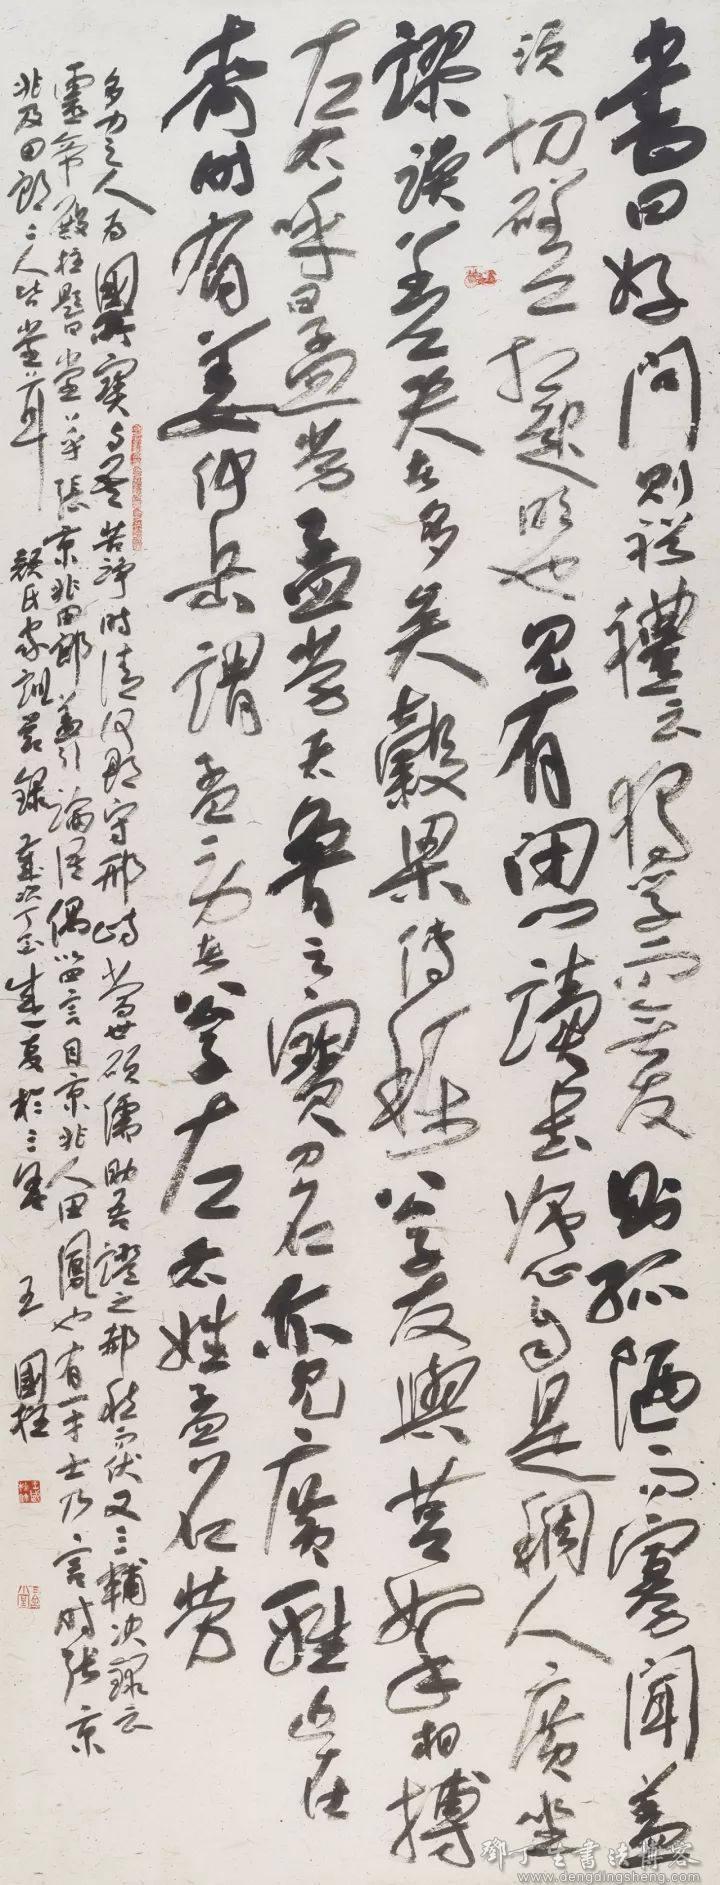 書曰好問則裕禮云獨學而無友則孤陋而寡聞蓋
須切磋相起明也見有閉門讀書師心自是稠人廣坐
謬誤差失者多矣穀梁傳稱公子友與莒挐相搏
左右呼曰孟勞孟勞者魯之寶刀名亦見廣雅近在
齊時有姜仲岳謂孟勞者公子左右姓孟名勞
多力之人為國所寶與吾苦諍時清河郡守邢峙當世碩儒助吾證之赧然而伏又三輔決錄云
靈帝殿柱題曰堂堂乎張京兆田郎蓋引論語偶以四言目京兆人田鳳也有一才士乃言時張京
兆及田郎二人皆堂堂耳 顏氏家訓節錄 歲次丁酉 夏於三 王國柱
鄧丁生書法博客
www.dengdingsheng.com